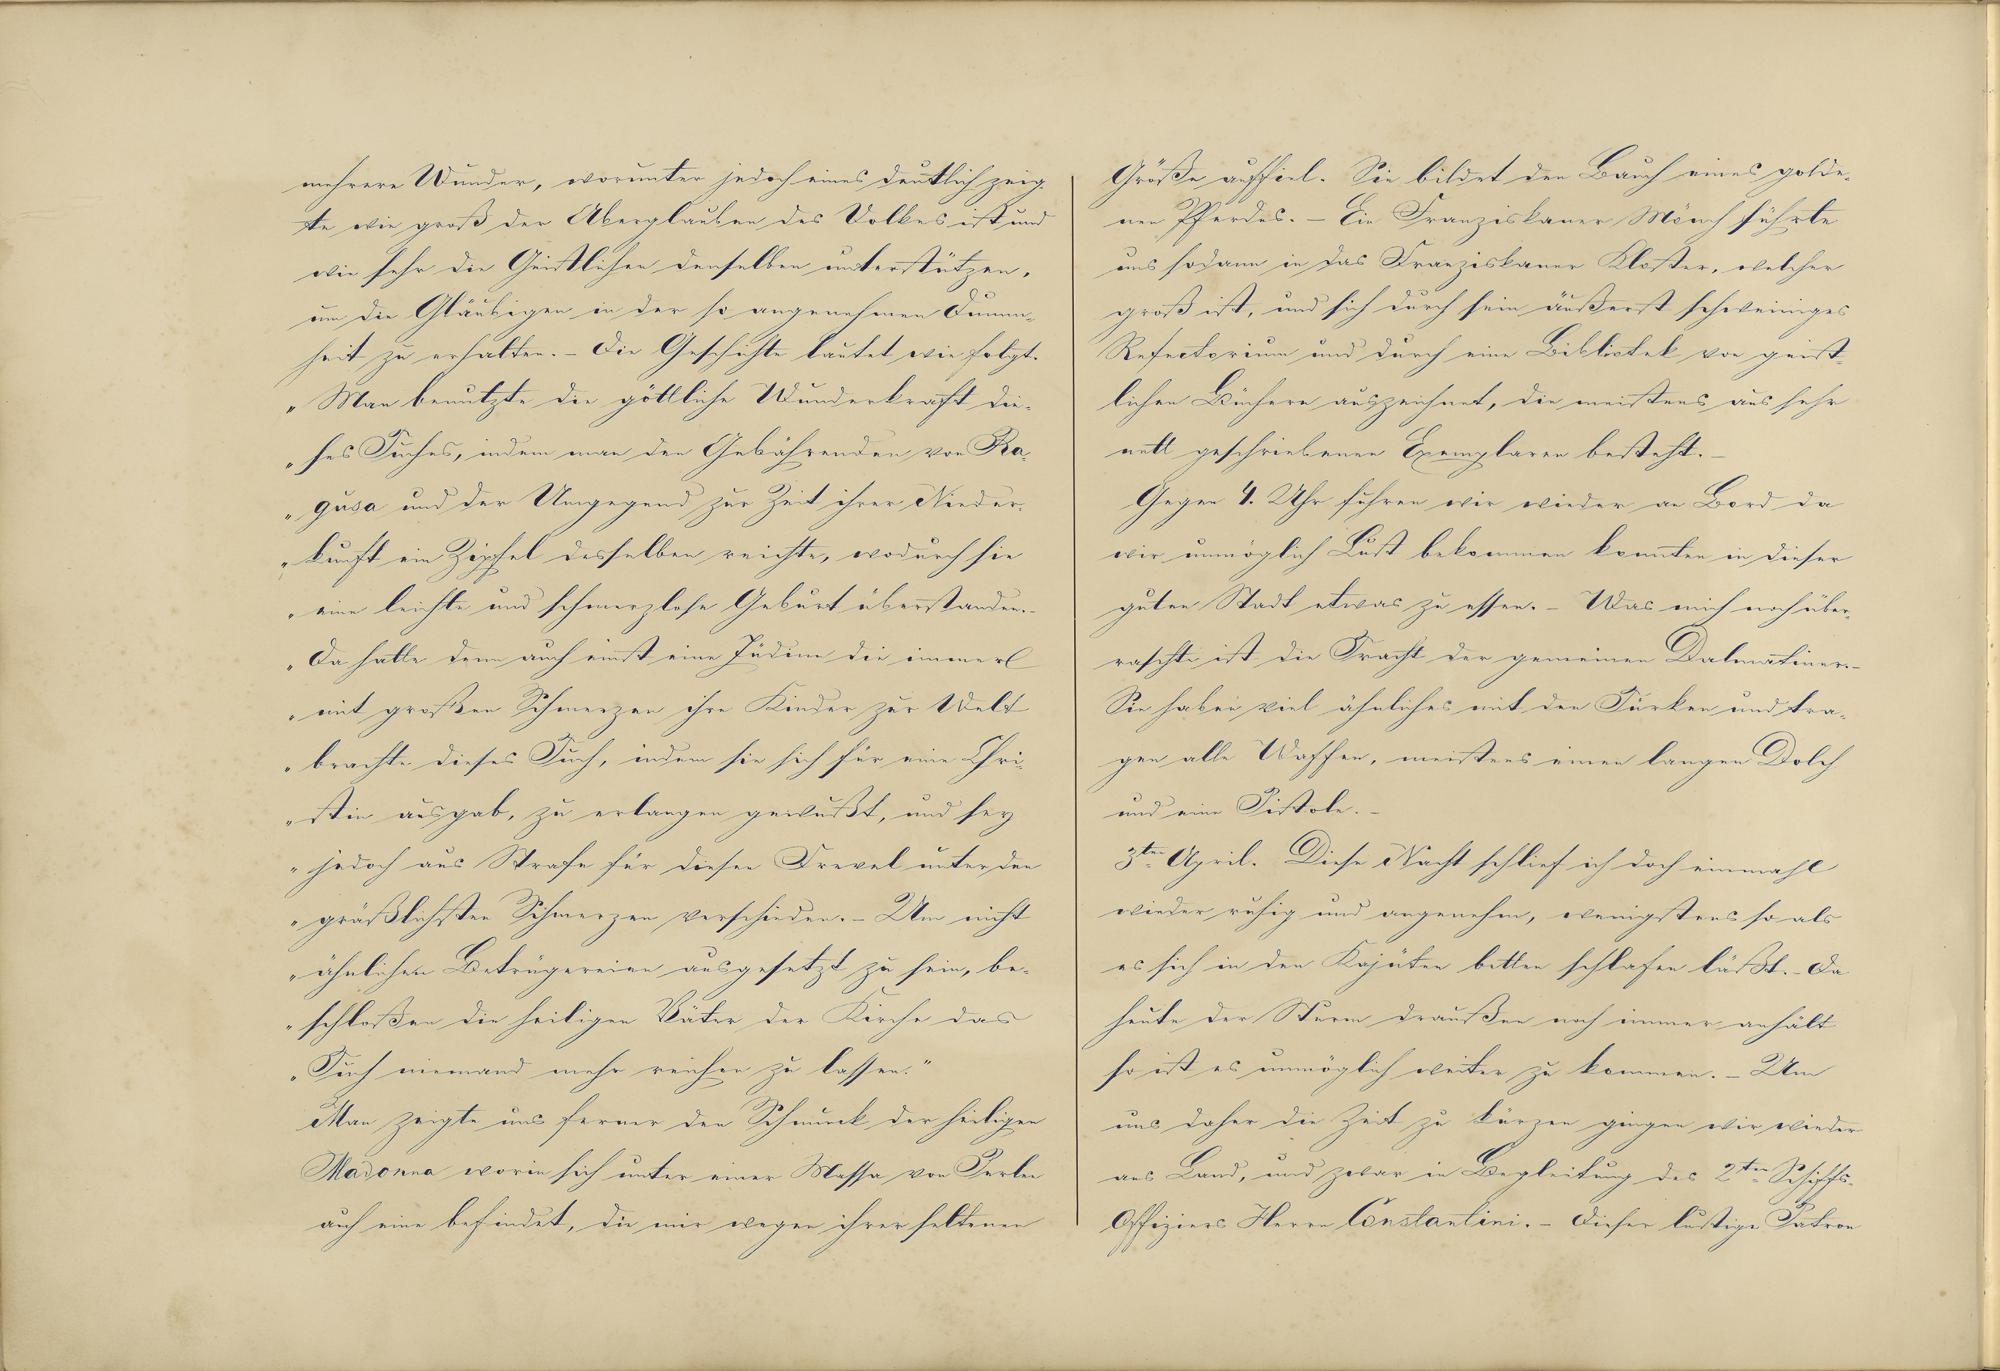 mehrere Wunder, worunter jedoch eines deutlich zeig-
te wie groß der Aberglauben des Volkes ist und
wie sehr die Geistlichen denselben unterstützen,
um die Gläubigen in der so angenehmen Dumm-
heit zu erhalten. – Die Geschichte lautet wie folgt.
„ Man benutzte die göttliche Wunderkraft die-
„ ses Tuches, indem man den Gebährenden von Ra-
„ gusa und der Umgegend zur Zeit ihrer Nieder-
„ kunft ein Zipfel desselben reichte, wodurch sie
„ eine leichte und schmerzlose Geburt überstanden. –
„ Da hatte denn auch einst eine Jüdinn die immer
„ mit großen Schmerzen ihre Kinder zur Welt
„ brachte dieses Tuch, indem sie sich für eine Chri-
„ stin ausgab, zu erlangen gewußt, und sey
„ jedoch aus Strafe für diesen Frevel unter den
„ gräßlichsten Schmerzen verschieden. – Um nicht
„ ähnlichen Betrügereien ausgesetzt zu sein, be-
„ schloßen die heiligen Väter der Kirche das
„ Tuch niemand mehr reichen zu lassen."
Man zeigte uns ferner den Schmuck der heiligen
Madonna worin sich unter einer Massa von Perlen
auch eine befindet, die mir wegen ihrer seltenen
Größe auffiel. Sie bildet den Bauch eines golde-
nen Pferdes. – Ein Franziskaner Mönch führte
uns sodann in das Franziskaner Kloster, welcher
groß ist, und sich durch sein äußerst schweiniges
Refectorium und durch eine Bibliotek von geist-
lichen Büchern auszeichnet, die meistens aus sehr
nett geschriebenen Exemplaren besteht. –
Gegen 4. Uhr fuhren wir wieder an Bord da
wir unmöglich Lust bekommen konnten in dieser
guten Stadt etwas zu essen. – Was mich noch über-
raschte ist die Tracht der gemeinen Dalmatiner. –
Sie haben viel ähnliches mit den Türken und tra-
gen alle Waffen, meistens einen langen Dolch
und eine Pistole. –
3ten April. Diese Nacht schlief ich doch einmahl
wieder ruhig und angenehm, wenigstens so als
es sich in den Kajüten betten schlafen läßt. – Da
heute der Sturm draußen noch immer anhält
so ist es unmöglich weiter zu kommen. – Um
uns daher die Zeit zu kürzen gingen wir wieder
ans Land, und zwar in Begleitung des 2ten Schiffs-
Offiziers Herrn Constantini. – Dieser lustige Patron